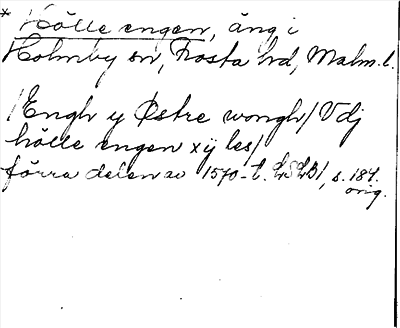 * Hölle engen, äng i
Holmby sn, Frosta hd, Malm. l.
/Engh y Østre wongh/ Vdj
hölle engen xÿ les/
förra delen av 1570-t. LSLB1, s. 184.
orig.